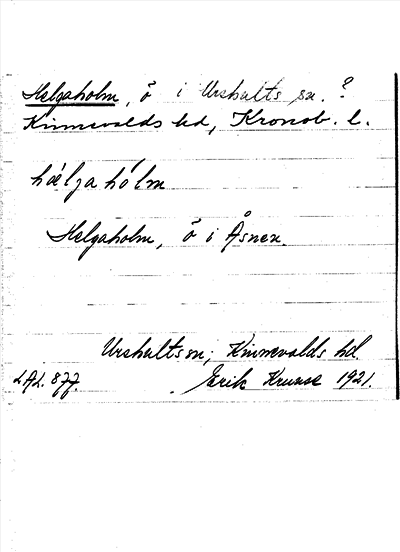 Helgaholm, ö i Urshults sn. ?
Kinnevalds hd, Kronob. l.
hælja hólm
Helgaholm, ö i Åsnen.
Urshults sn; Kinnevalds hd
LAL. 877. Erik Kruuse 1921.